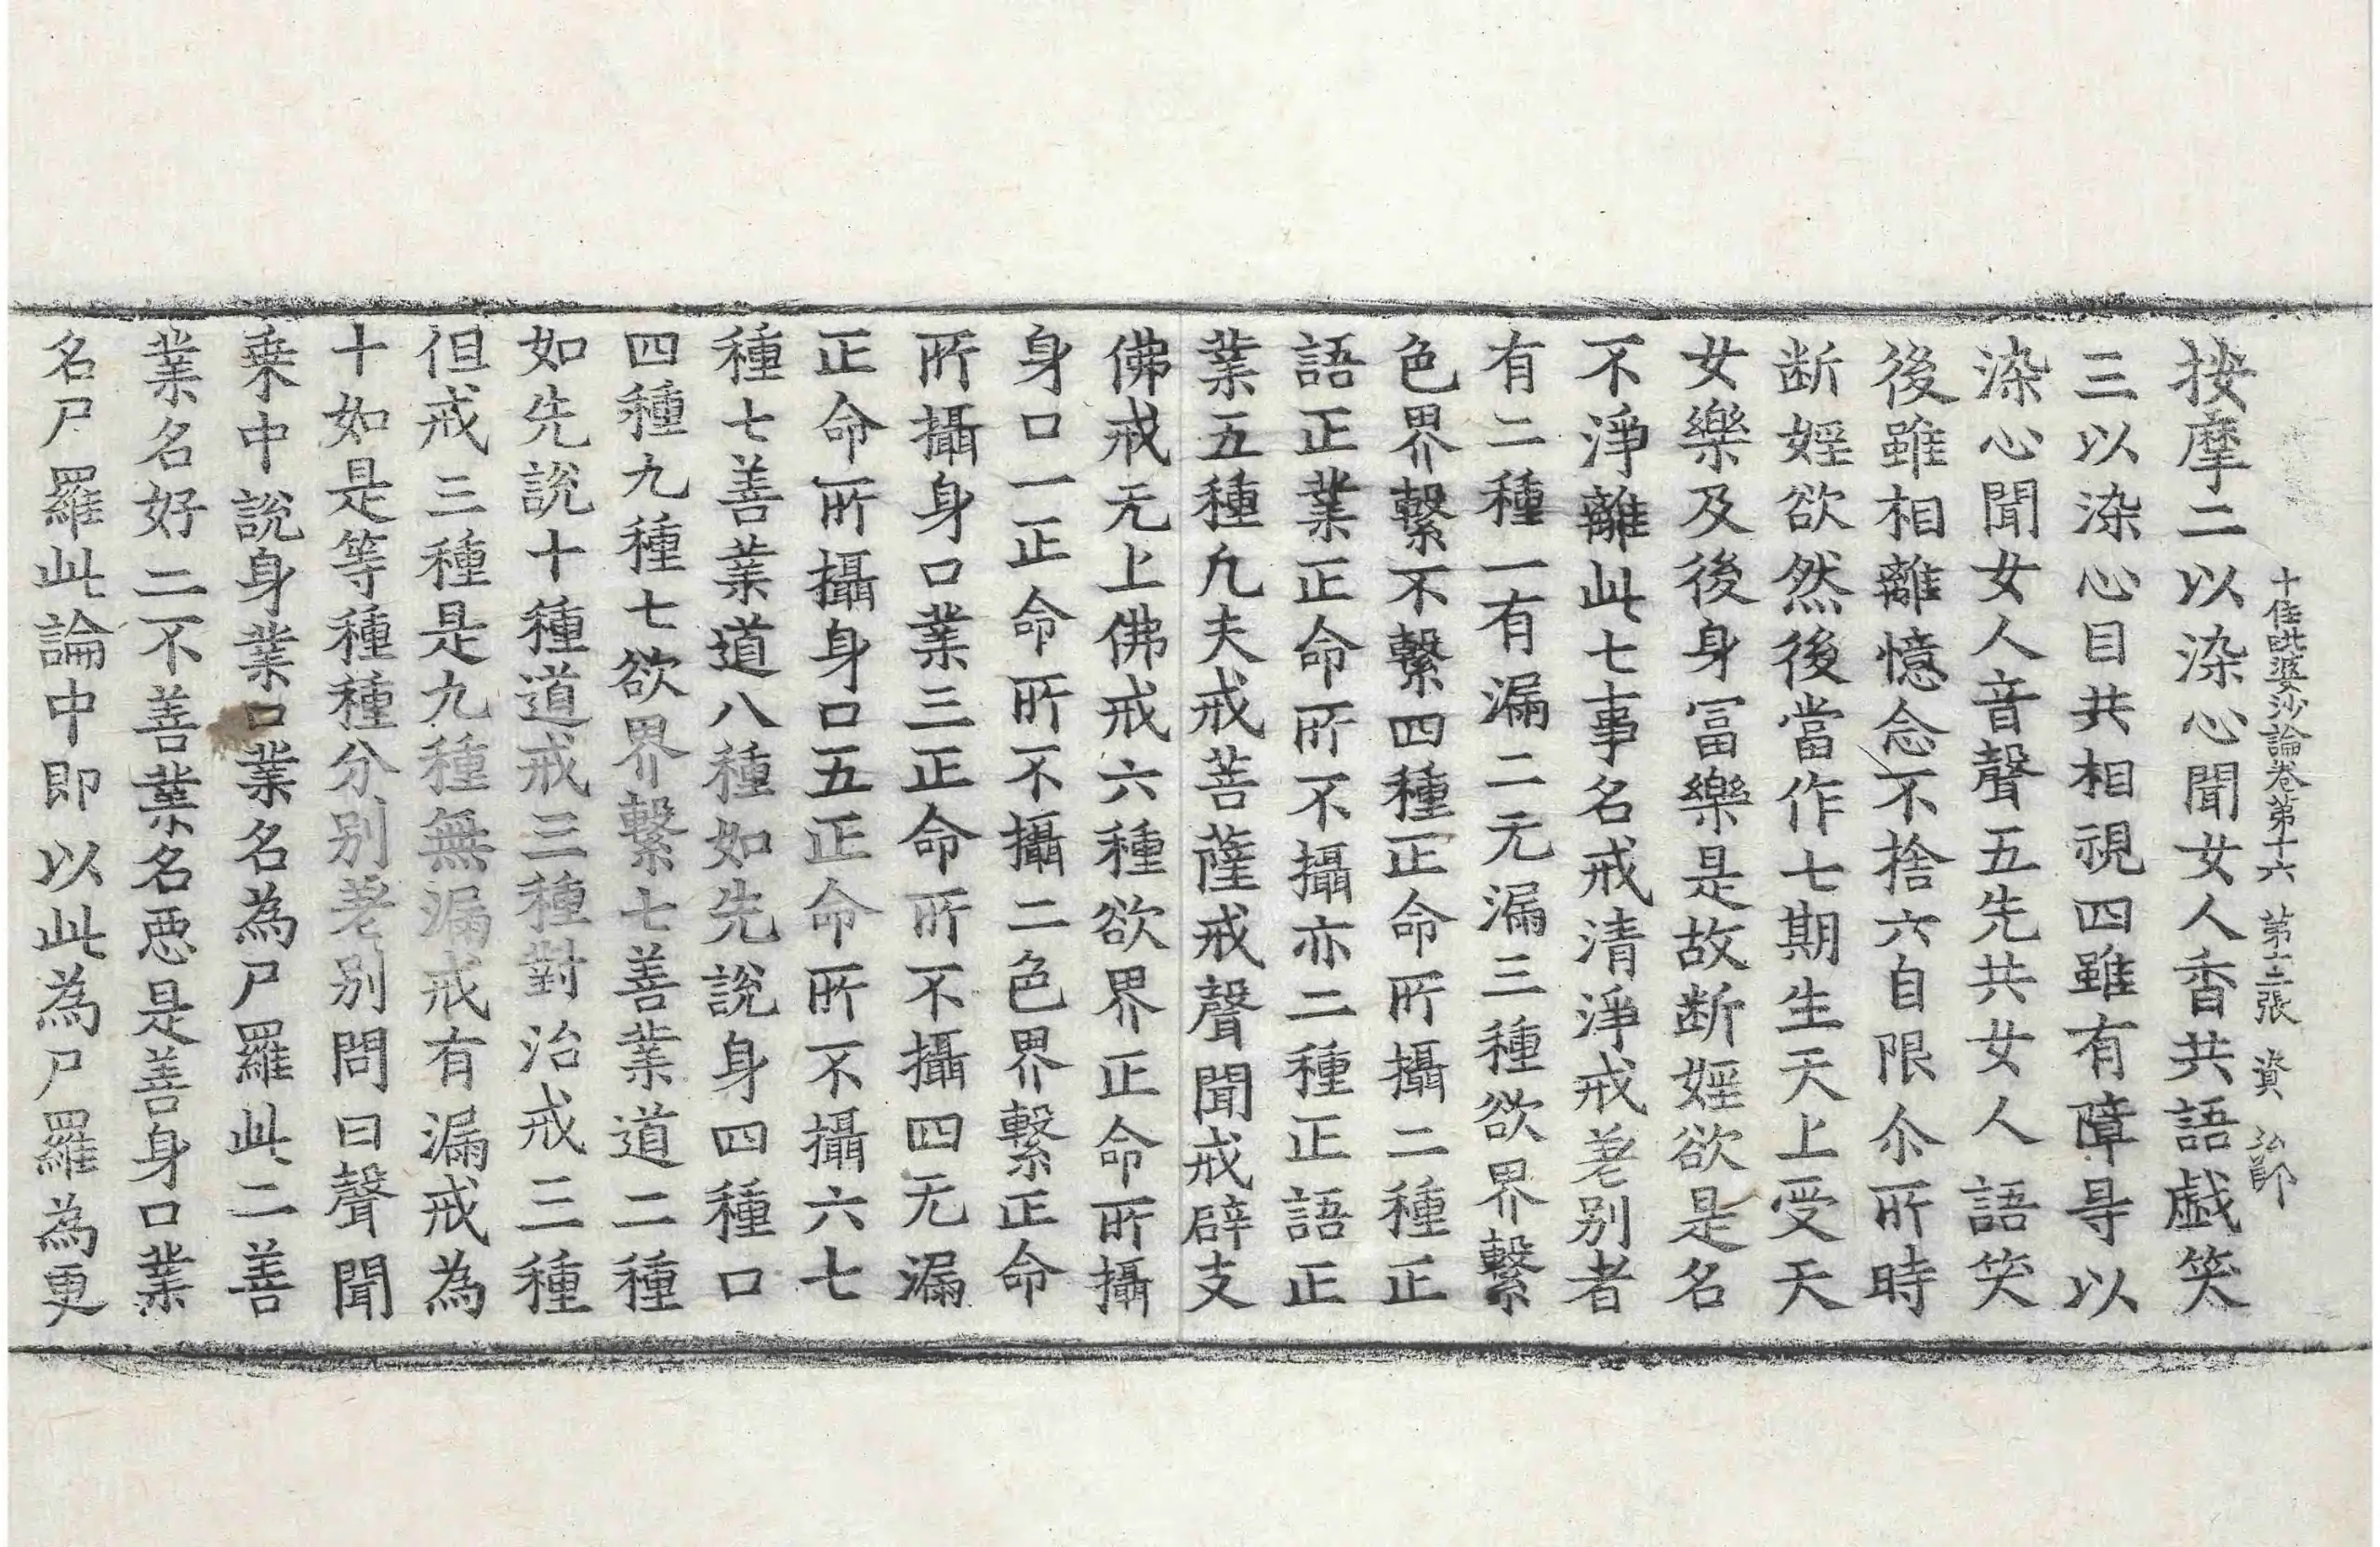 十住毗婆沙論卷第十六 第十三張 資 弘師
按摩二以染心聞女人香共語戱笑
三以染心目共相視四雖有障㝵以
染心聞女人音聲五先共女人語笑
後雖相離憶念不捨六自限尒所時
断婬欲然後當作七期生天上受天
女樂及後身冨樂是故断婬欲是名
不淨離此七事名戒清淨戒差别者
有二種一有漏二无漏三種欲界繫
色界繫不繫四種正命所攝二種正
語正業正命所不攝亦二種正語正
業五種凡夫戒菩薩戒聲聞戒辟支
佛戒无上佛戒六種欲界正命所攝
身口一正命所不攝二色界繫正命
所攝身口業三正命所不攝四无漏
正命所攝身口五正命所不攝六七
種七善業道八種如先說身四種口
四種九種七欲界繫七善業道二種
如先說十種道戒三種對治戒三種
但戒三種是九種無漏戒有漏戒為
十如是等種種分别差别問曰聲聞
乗中說身業口業名為尸羅此二善
業名好二不善業名惡是善身口業
名尸羅此論中即以此為尸羅為更